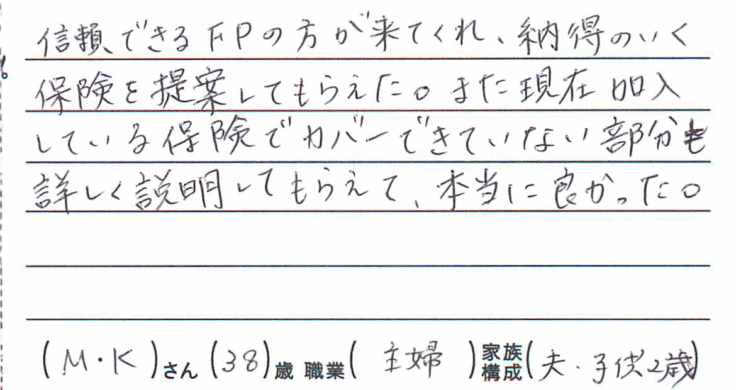 信頼できるFPの方が来てくれ、納得のいく
保険を提案してもらえた。また現在加入
している保険でカバーできていない部分も
詳しく説明してもらえて、本当に良かった。
(M・K)さん(38)歳 職業(主婦)家族構成(夫・子供2歳)